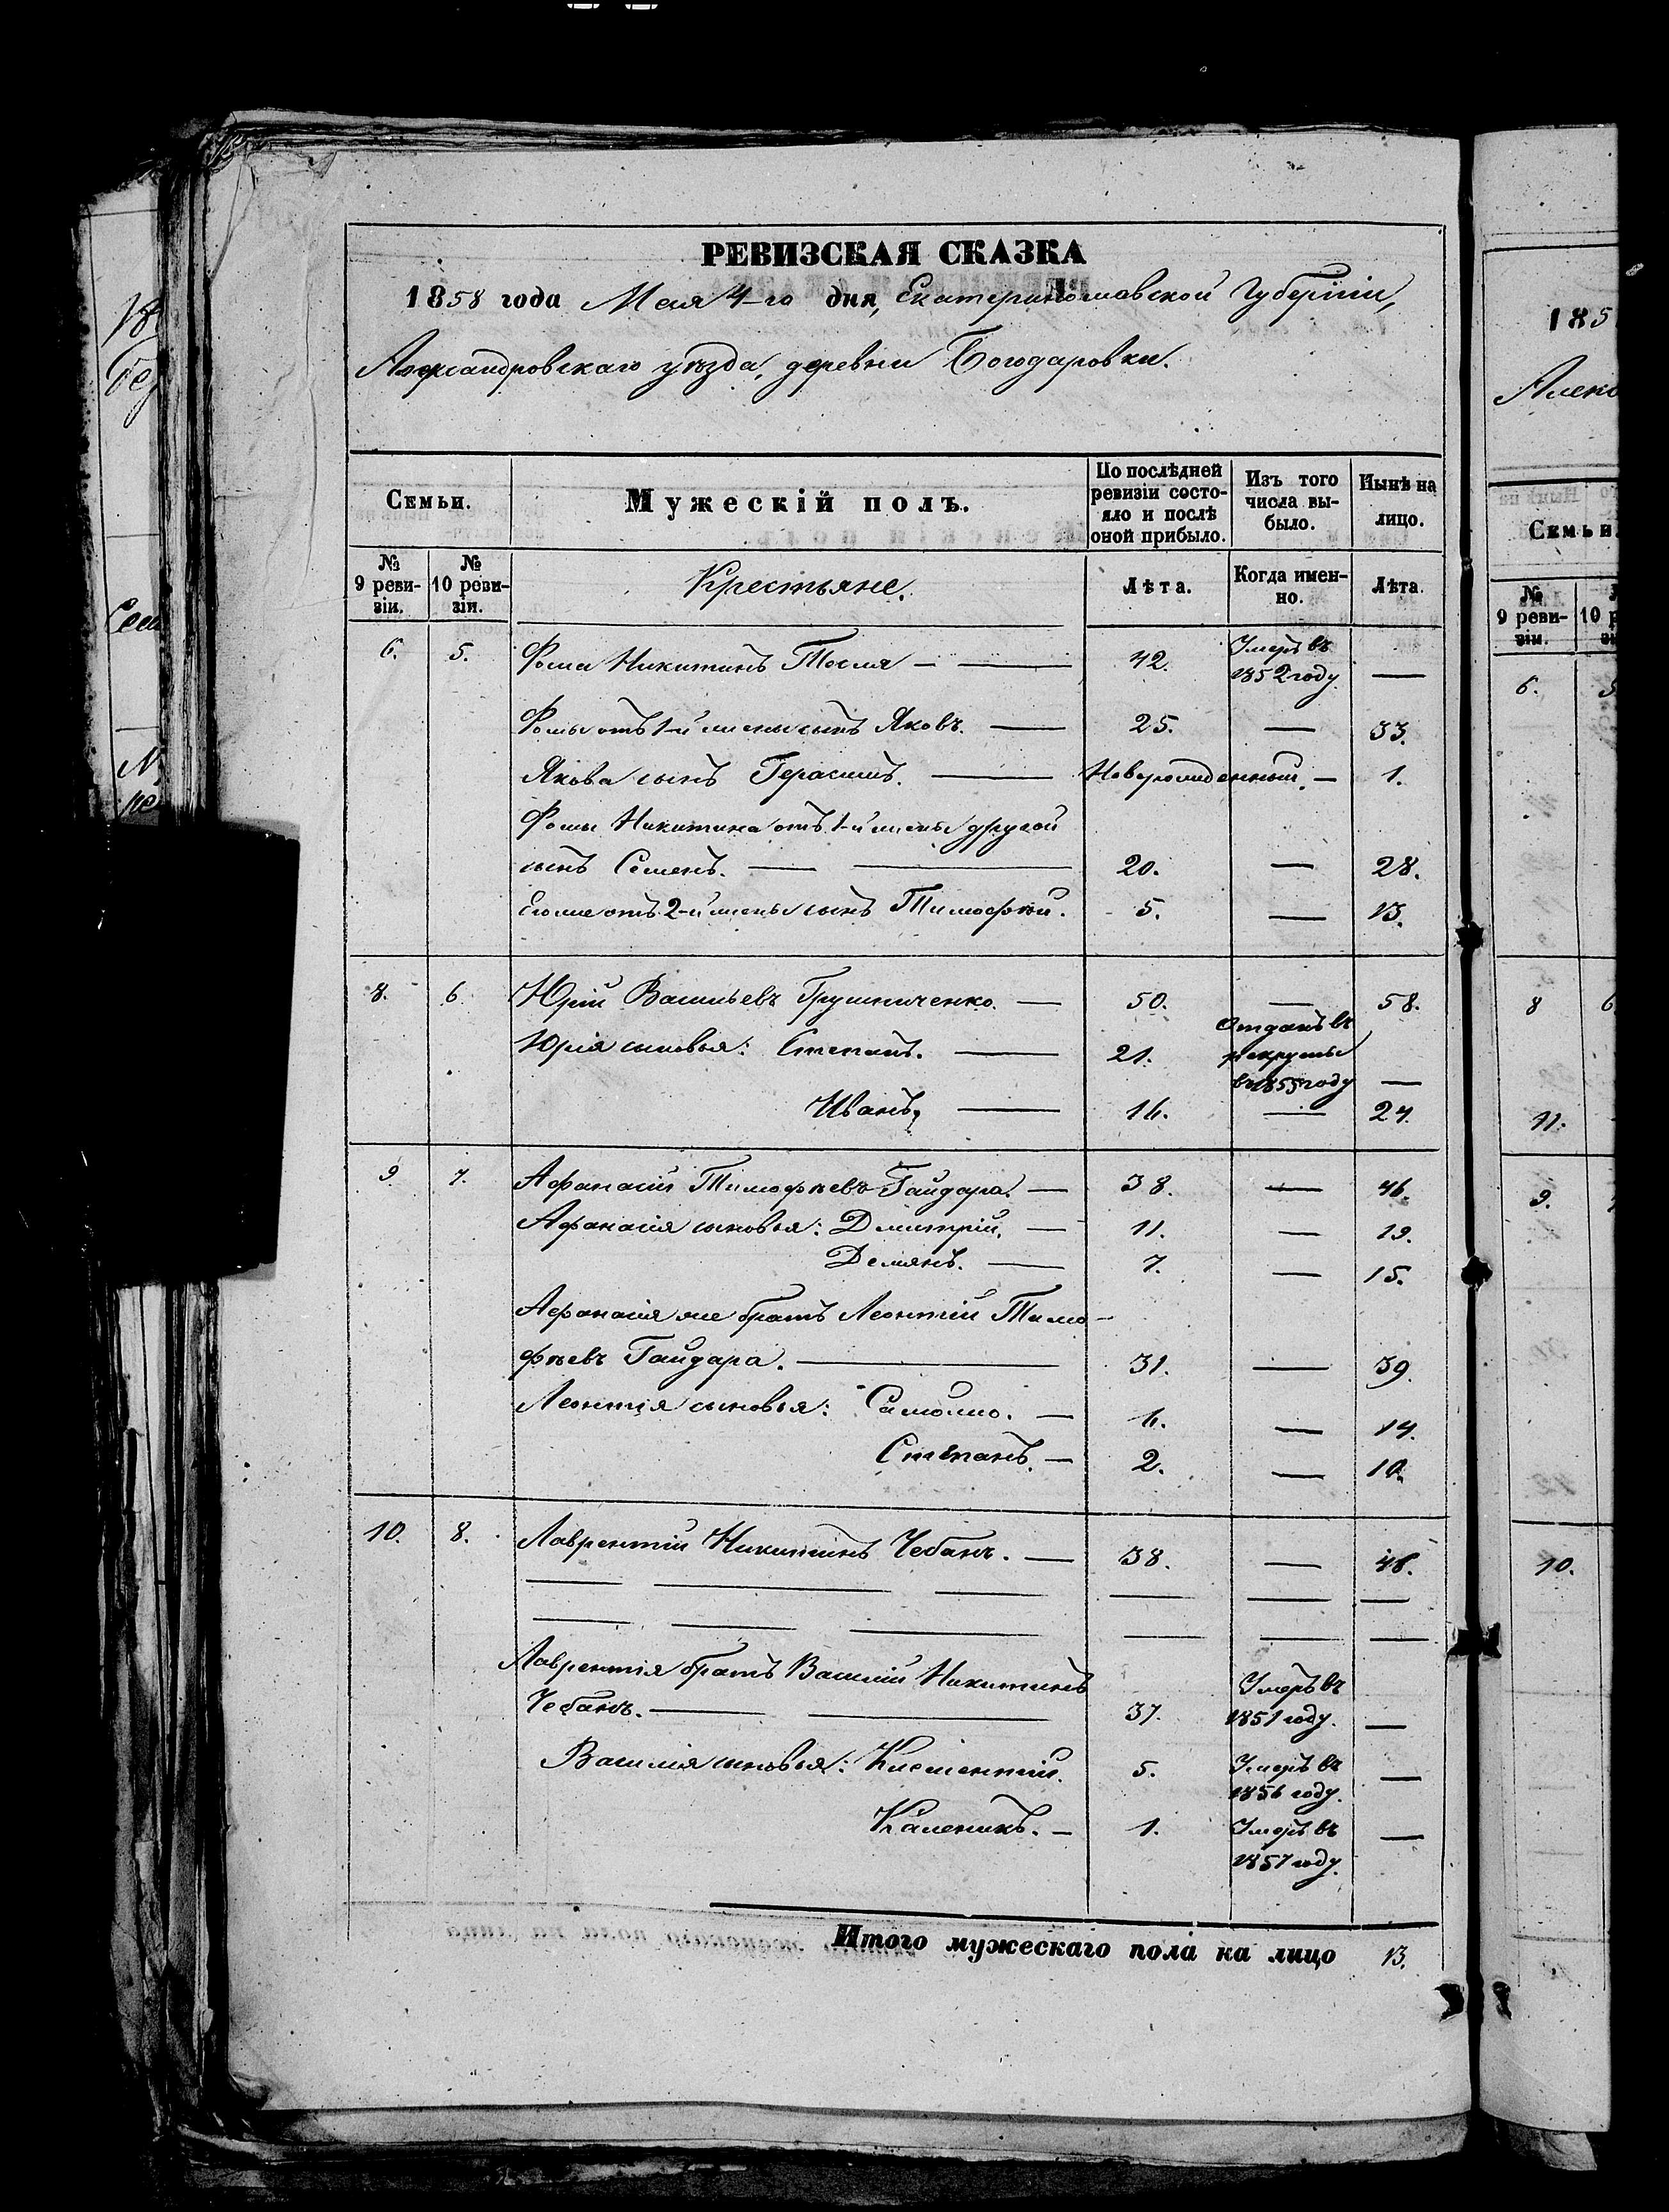 РЕВИЗСКАЯ СКАЗКА
1858 года Мая 4-го дня, Екатеринославской Губерніи,
Александровскаго уѣзда, деревни Богодаровки.
Семьи.
Мужескій полъ.
По послѣдней ревизіи состояло и послѣ оной прибыло.
Изъ того числа выбыло.
Нынѣ на лицо.
№ 9 ревизіи.
№ 10 ревизіи.
Крестьяне.
Лѣта.
Когда именно.
Лѣта.
6. 5. Фома Никитинъ — — 42. Умеръ въ 1852 году. —
Фомы отъ 1-й жены сынъ Яковъ. — 25. — 33.
Якова сынъ Герасимъ. — Новорожденный. — 1.
Фомы Никитина отъ 1-й жены другой
сынъ Семенъ. — — 20. — 28.
Его же отъ 2-й жены сынъ Тимофей. 5. — 13.
8. 6 Юрій Васильевъ Грушниченко. — 50. — 58.
Юрія сыновья: Степанъ. — 21. Отданъ въ рекруты въ 1855 году —
Иванъ, — 16. — 24.
9 7. Афанасій Тимофѣевъ Гайдара. — 38. — 46.
Афанасія сыновья: Дмитрій. — 11. — 19.
Демянъ. — 7. — 15.
Афанасія же братъ Леонтій Тимо-
фѣевъ Гайдара. — 31. — 39.
Леонтія сыновья: Самойло. — 6. — 14.
Степанъ. — 2. — 10.
10. 8. Лаврентій Никитинъ Чебанъ. — 38. — 46.
— — — — — —
— — — — — —
Лаврентія братъ Василій Никитинъ
Чебанъ. — — 37. Умеръ въ 1851 году. —
Василія сыновья: Климентій. 5. Умеръ въ 1856 году. —
Каленикъ. — 1. Умеръ въ 1857 году. —
Итого мужескаго пола на лицо 13.
185
Алекс
Семьи
№ 9 ревизіи.
10
6.
8 6
11.
9.
10.